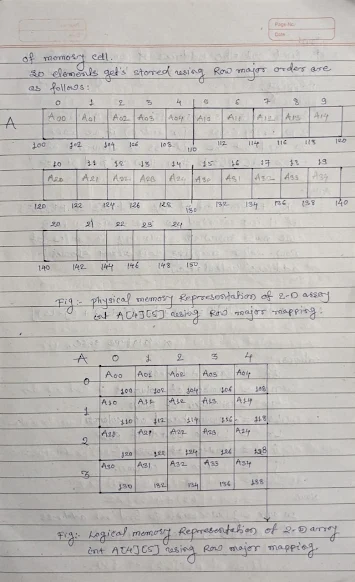 Page No.
Date
of memory cell.
20 elements gets stored using Row major order are
as follows:
0 1 2 3 4 5 6 7 8 9
A A00 A01 A02 A03 A04 A10 A11 A12 A13 A14
100 102 104 106 108 110 112 114 116 118 120
10 11 12 13 14 15 16 17 18 19
A20 A21 A22 A23 A24 A30 A31 A32 A33 A34
120 122 124 126 128 130 132 134 136 138 140
20 21 22 23 24
140 142 144 146 148 150
Fig:- physical memory Representation of 2-D array
int A[4][5] using Row major mapping.
A 0 1 2 3 4
0 A00 A01 A02 A03 A04
100 102 104 106 108
1 A10 A11 A12 A13 A14
110 112 114 116 118
2 A20 A21 A22 A23 A24
120 122 124 126 128
3 A30 A31 A32 A33 A34
130 132 134 136 138
Fig:- Logical memory Representation of 2-D array
int A[4][5] using Row major mapping